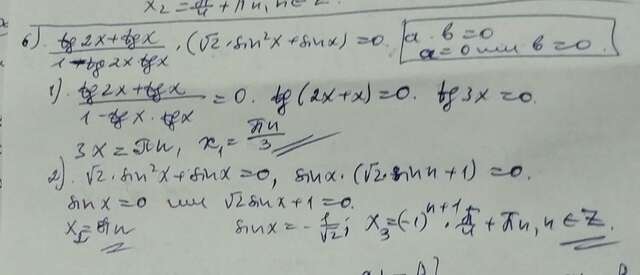 x₂ = π/4 + πn, n ∈ Z.
6). (tg2x + tgx)/(1 - tg2x tgx) · (√2 · sin²x + sinx) = 0. a · b = 0
a = 0 или b = 0
1). (tg2x + tgx)/(1 - tgx · tgx) = 0. tg(2x + x) = 0. tg3x = 0.
3x = πn, x₁ = πn/3
2). √2 · sin²x + sinx = 0, sinx · (√2 · sinx + 1) = 0.
sinx = 0 или √2 sinx + 1 = 0.
x₂ = πn sinx = - 1/√2; x₃ = (-1)ⁿ⁺¹ · π/4 + πn, n ∈ Z.